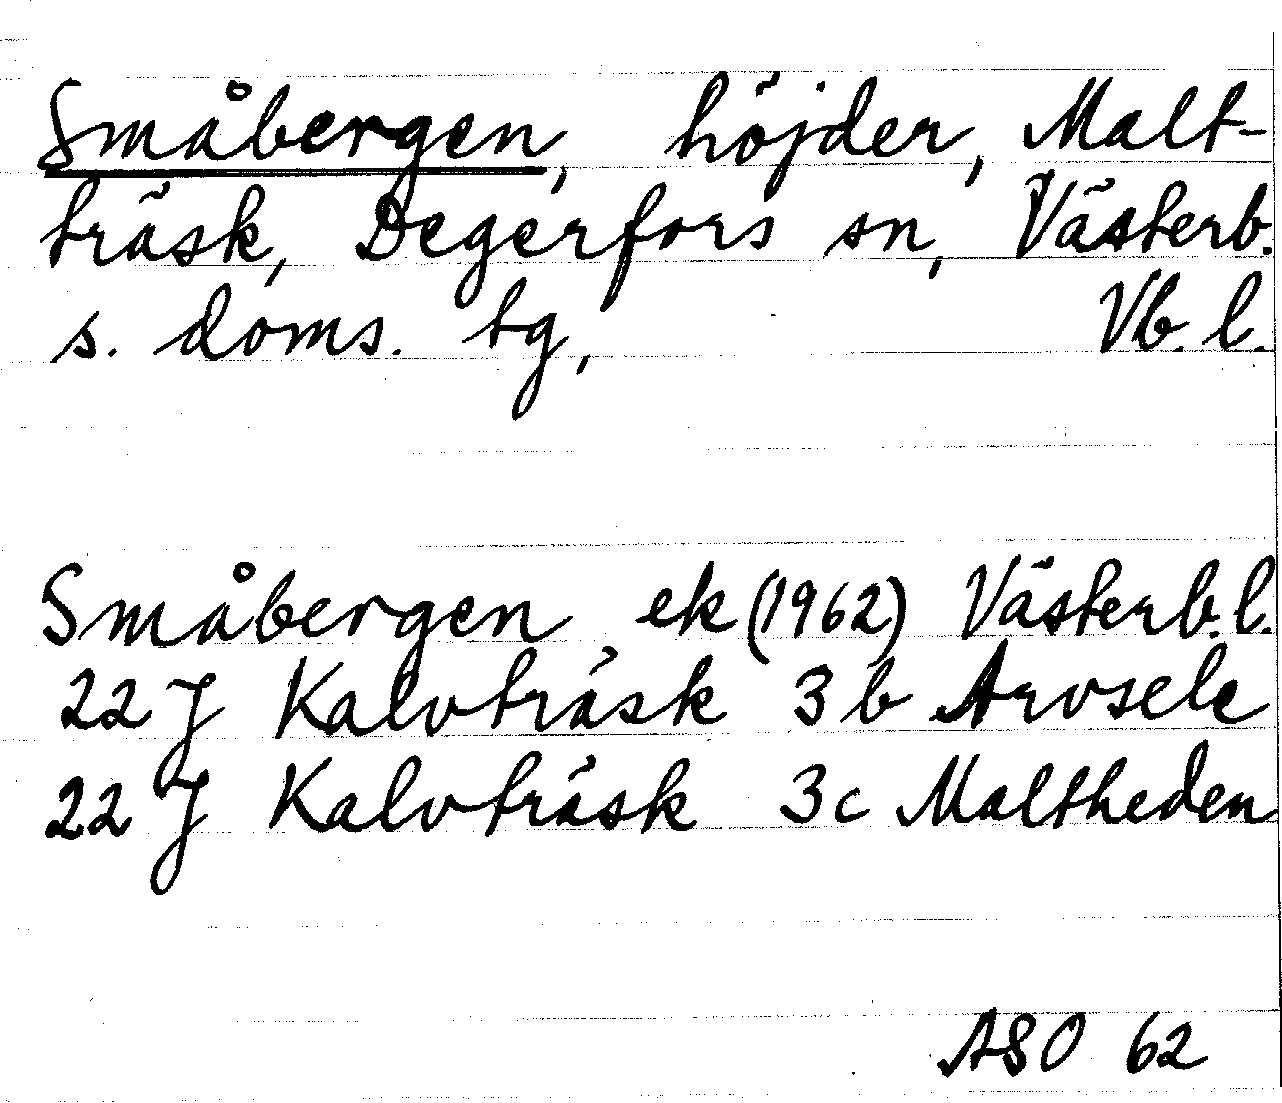 Småbergen, höjder, Malt-
träsk, Degerfors sn, Västerb.
s. doms. tg, Vb. l.
Småbergen ek (1962) Västerb. l.
22 J Kalvträsk 3 b Arvsele
22 J Kalvträsk 3c Maltheden
ASO 62